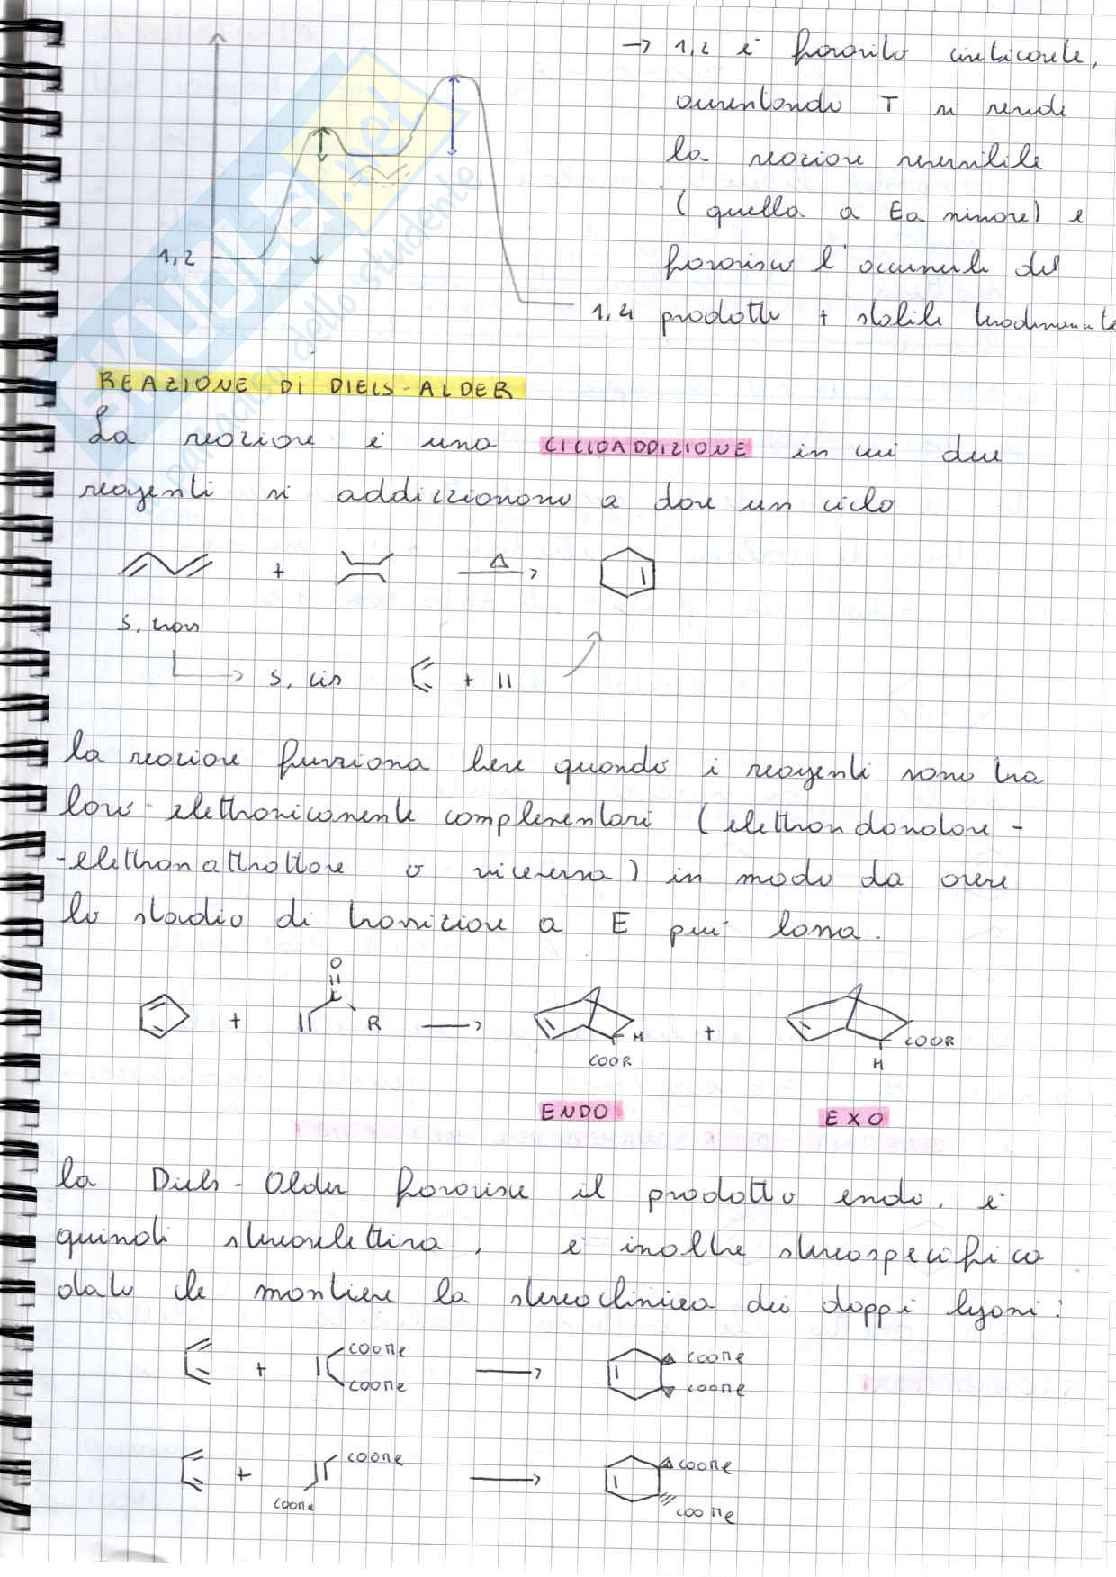 → 1,2 è favorito cineticamente,
aumentando T si rende
la reazione reversibile
(quella a Ea minore) e
favorisce l'accumulo del
prodotto + stabile termodinamicamente
1,2
1,4
SKUOLA.net
paradiso dello studente
REAZIONE DI DIELS-ALDER
La reazione è una CICLOADDIZIONE in cui due
reagenti si addizzionano a dare un ciclo
+ Δ
S, trans
S, cis + 
la reazione funziona bene quando i reagenti sono tra
loro elettronicamente complementari (elettrondonatore-
-elettronattrattore o viceversa) in modo da avere
lo stadio di transizione a E più bassa.
O
C
+ R + H COOR
COOR H
ENDO EXO
la Diels-Alder favorisce il prodotto endo, è
quindi stereoselettiva, è inoltre stereospecifica
dato che mantiene la stereochimica dei doppi legami:
COOMe COOMe
+
COOMe COOMe
COOMe COOMe
+
COOMe COOMe